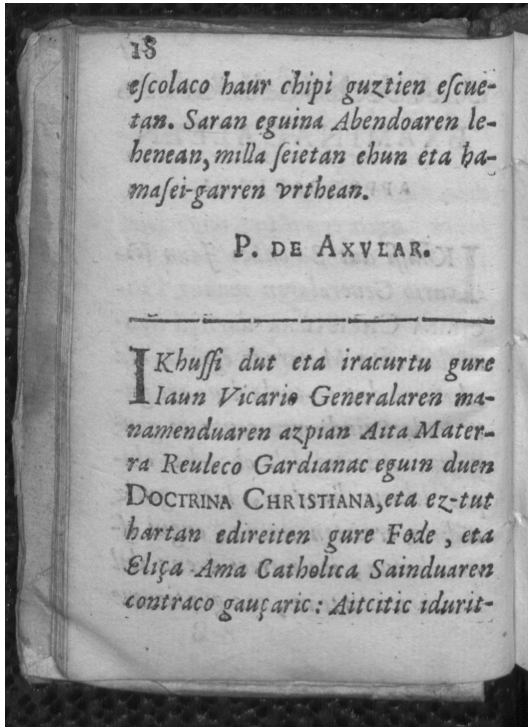 18
eſcolaco haur chipi guztien eſcue-
tan. Saran eguina Abendoaren le-
henean, milla ſeietan ehun eta ha-
maſei-garren vrthean.
P. DE AXVLAR.
IKhuſſi dut eta iracurtu gure
Iaun Vicario Generalaren ma-
namenduaren azpian Aita Mater-
ra Reuleco Gardianac eguin duen
DOCTRINA CHRISTIANA, eta ez-tut
hartan edireiten gure Fede, eta
Eliça Ama Catholica Sainduaren
contraco gauçaric: Aitcitic idurit-